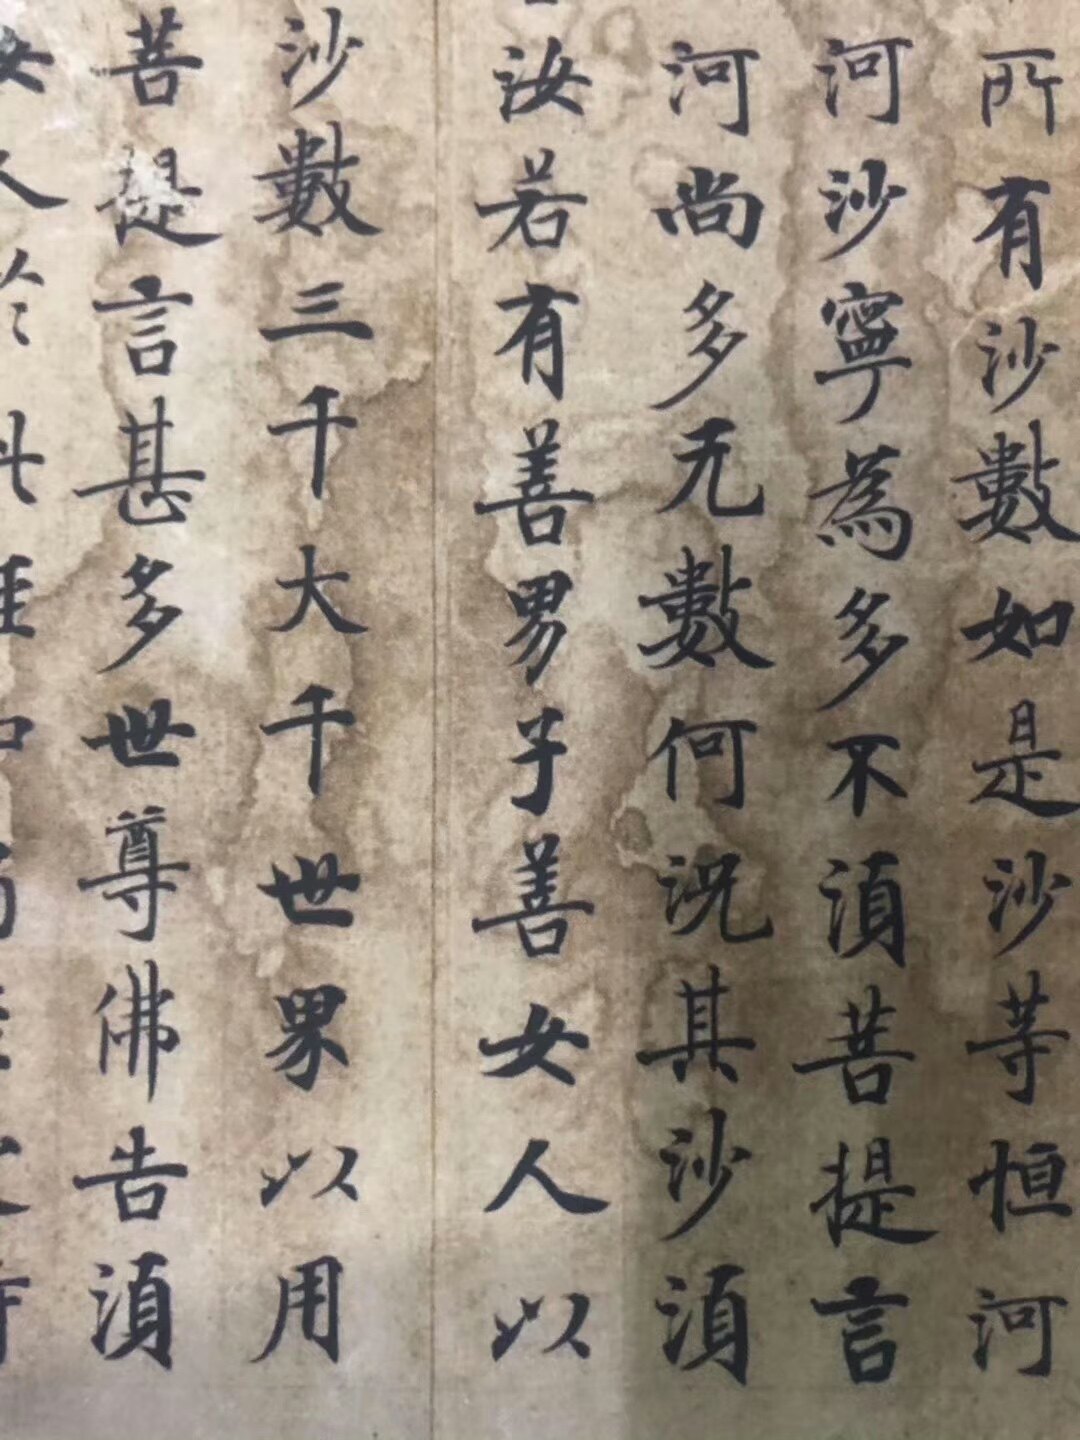 所有沙數如是沙等恒河
河沙寧為多不須菩提言
河尚多无數何況其沙須
汝若有善男子善女人以
沙數三千大千世界以用
菩提言甚多世尊佛告須